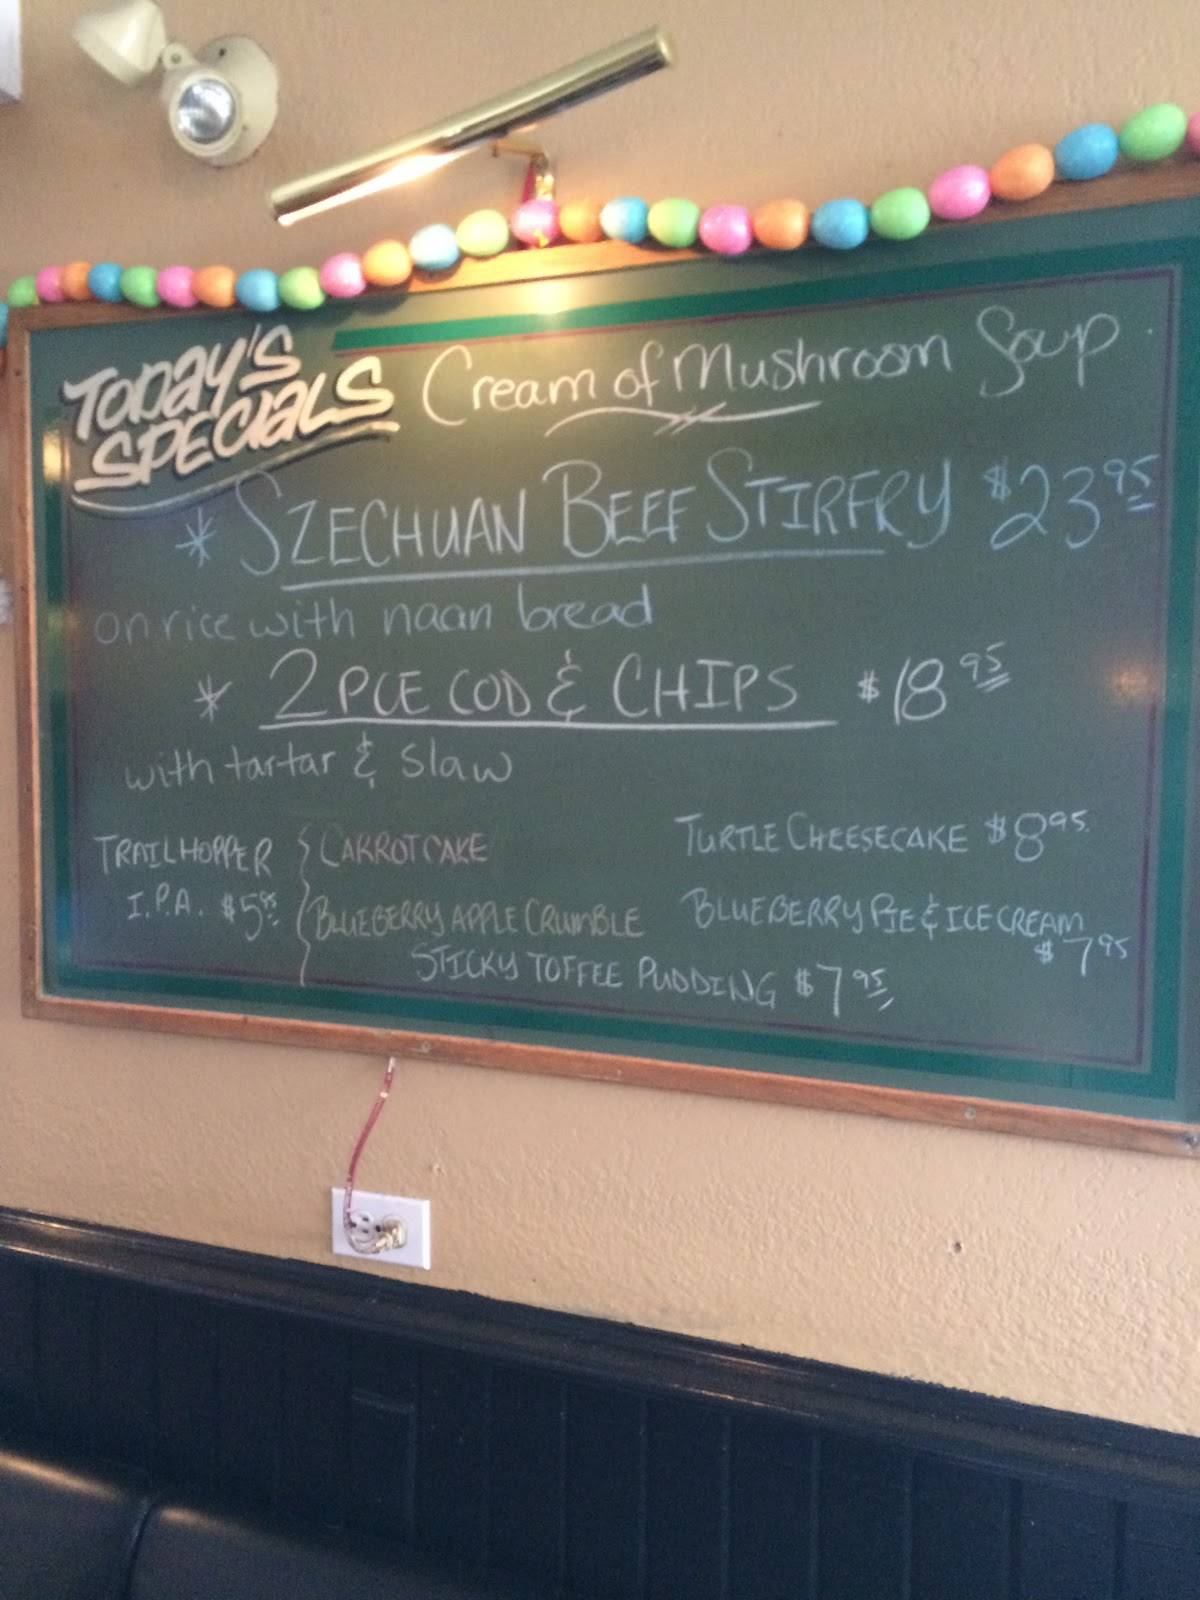 TODAY'S
SPECIALS
Cream of Mushroom Soup
* SZECHUAN BEEF STIRFRY $23.95
on rice with naan bread
* 2 PCE COD & CHIPS $18.95
with tartar & slaw
TRAILHOPPER
I.P.A. $5.95
CARROT CAKE
BLUEBERRY APPLE CRUMBLE
STICKY TOFFEE PUDDING $7.95
TURTLE CHEESECAKE $8.95
BLUEBERRY PIE & ICE CREAM
$7.95